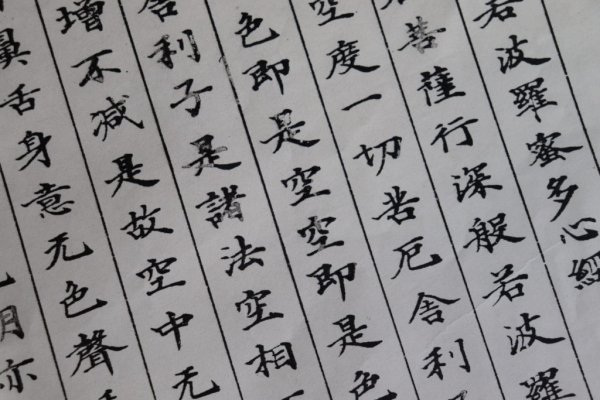 若波羅蜜多心經
菩薩行深般若波羅
空度一切苦厄舍利
色即是空空即是色
舍利子是諸法空相
增不減是故空中无
鼻舌身意无色聲
明亦